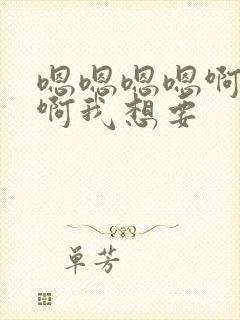 嗯嗯嗯嗯啊
啊我想要
单芳